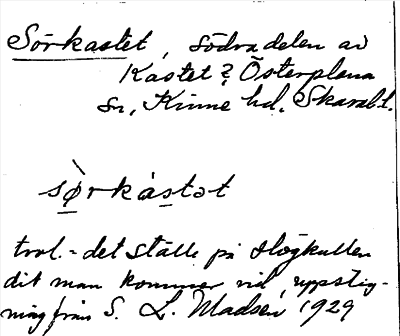 Sörkastet, södra delen av
Kastet? Österplana
sn, Kinne hd. Skarab. l.
sø̀rkástət
trol. - det ställe på Högkullen
dit man kommer vid uppstig-
ning från S. L. Madsén 1929